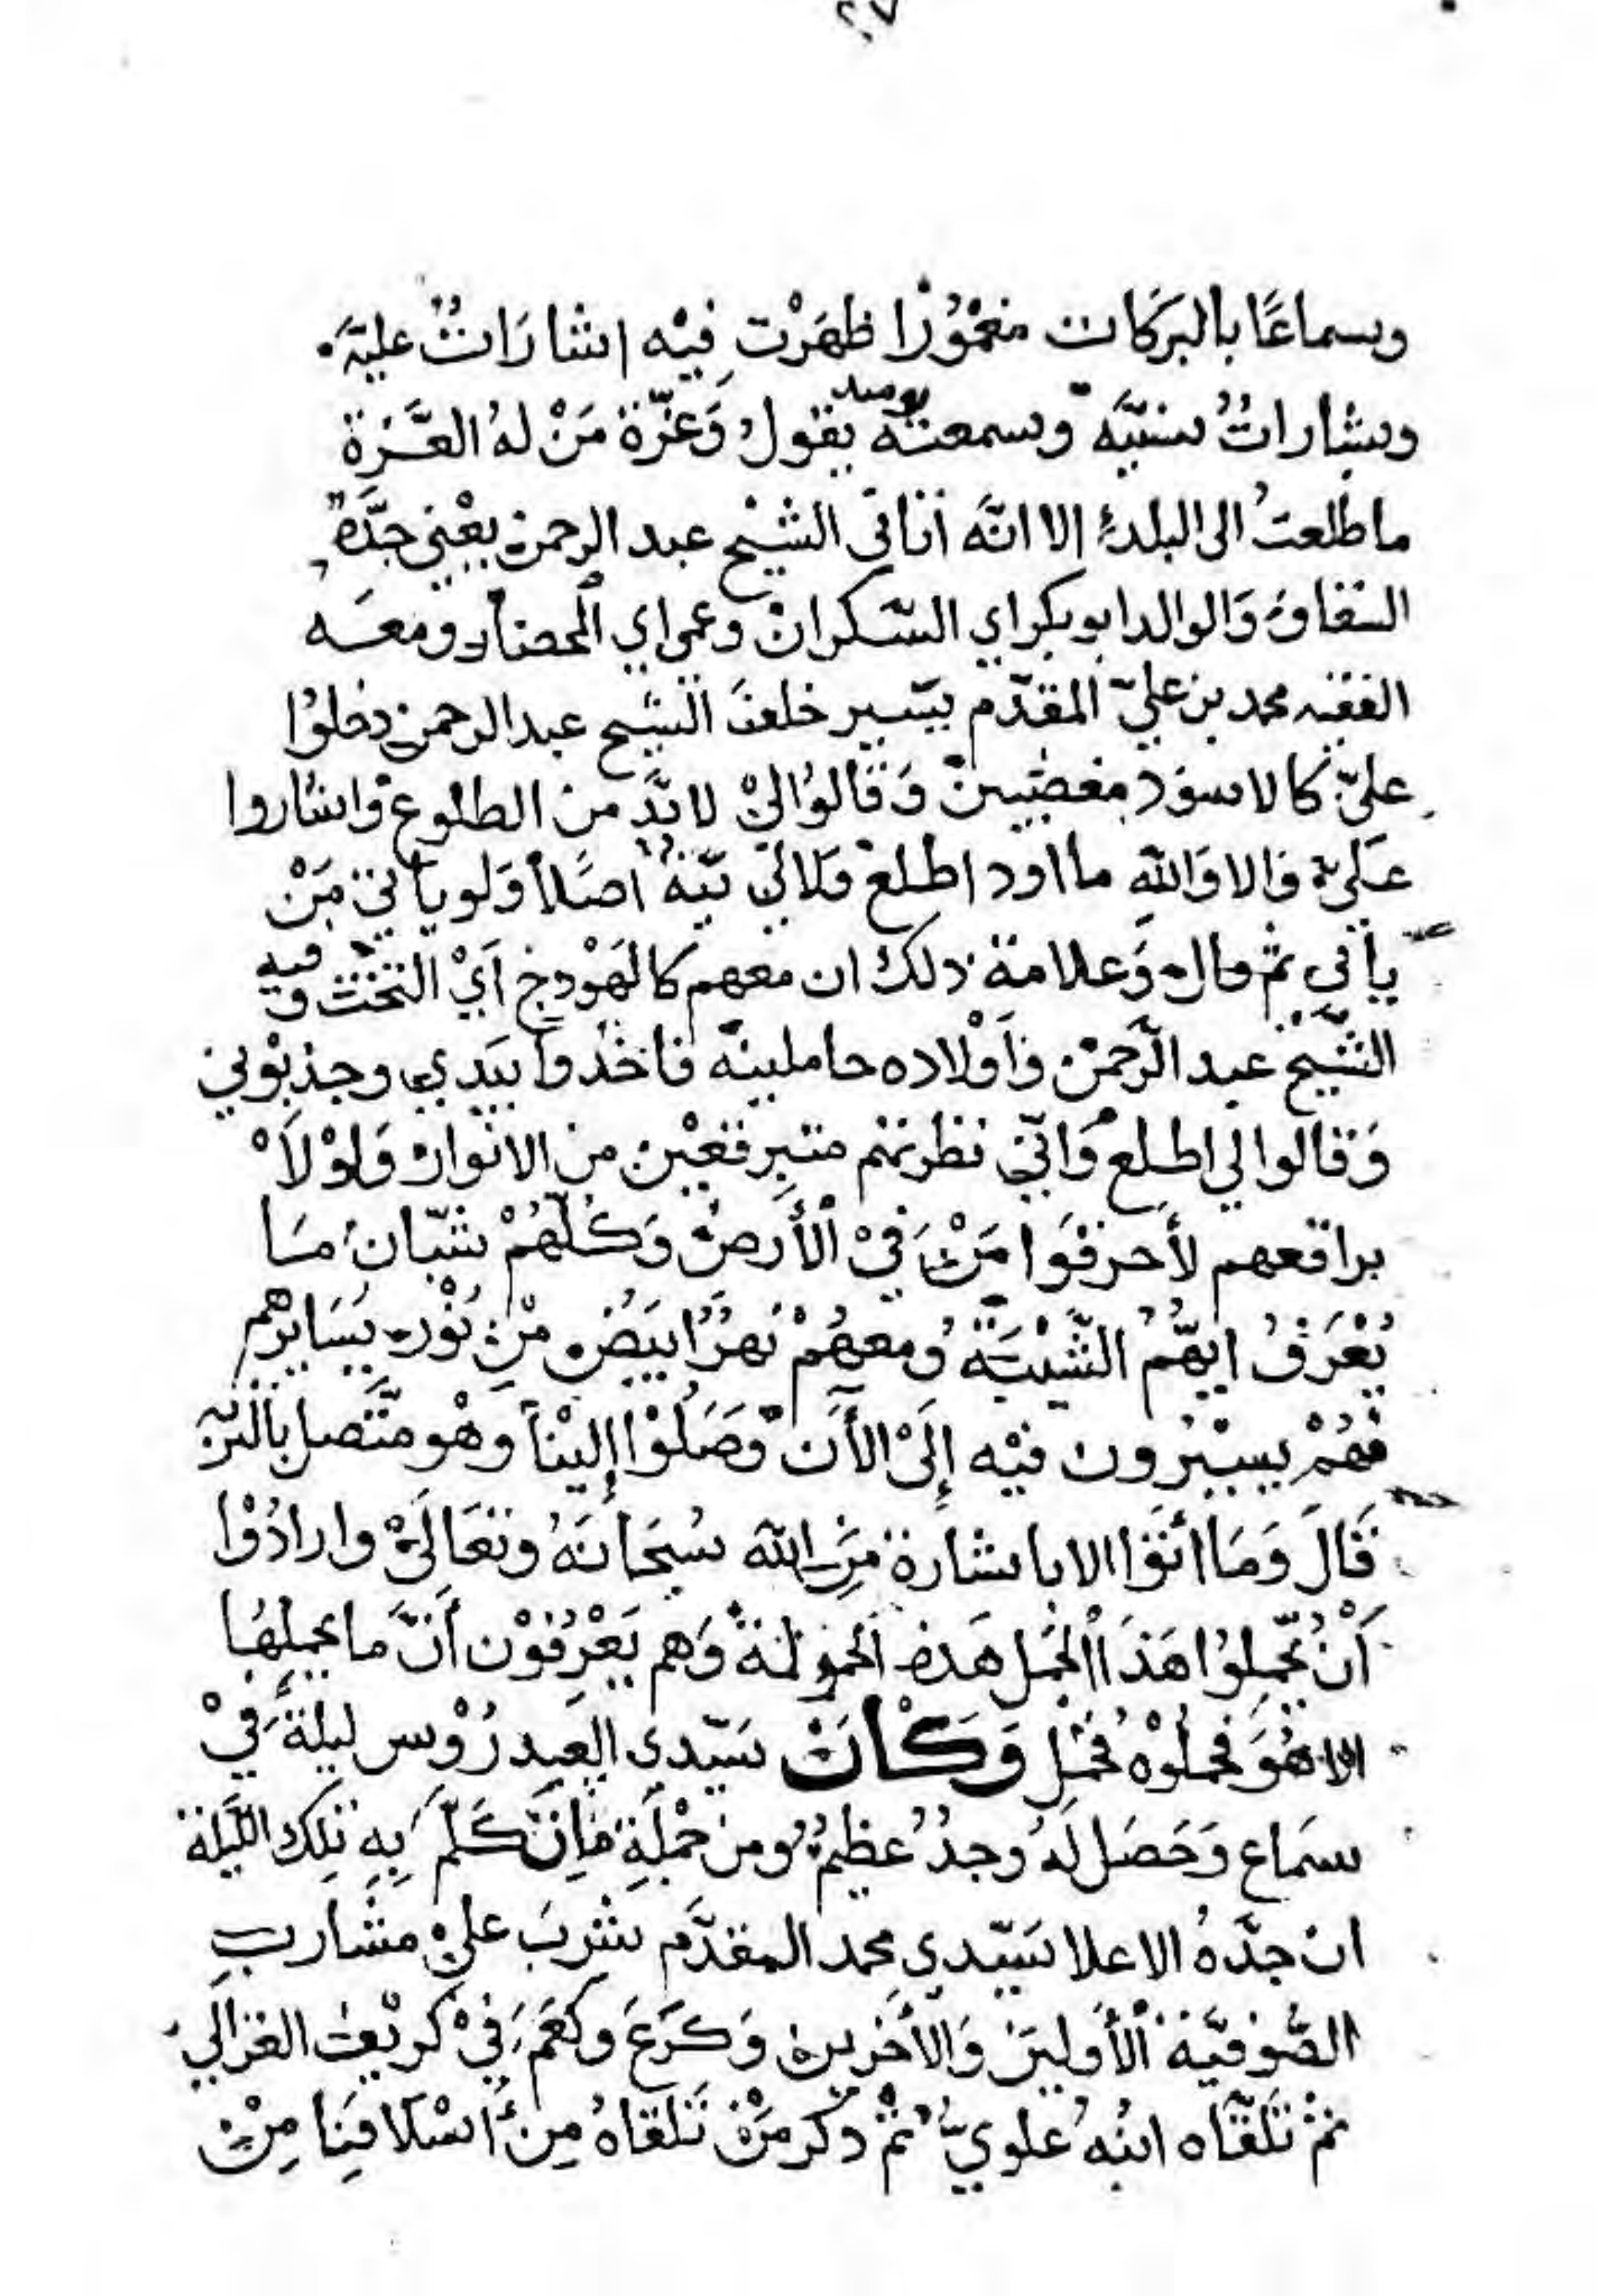 ٢٧
وسماعًا بالبرَكات مغمُوْرًا ظهَرْت فيْه اشارَاتٌ عليّه
وبشاراتٌ سنيَّه وسمعته يومئذ يقولُ وَعزّة مَنْ لهُ العَّزة
ما طلعتُ الى البلد إلا انَّه أتاني الشيْخ عبد الرحمن يعْني جدَّهُ
السقاف وَالوالد ابوبكر اي السَّكران وعمي اي المحضار ومعَه
الفقيه محمد بن عليّ المقدّم يسير خلف الشيخ عبد الرحمن دخلوُا
عليّ كالاسوْد مغضبين وَقالوْا لي لا بدَّ من الطلوع واشاروا
عَليّ والا وَاللهِ ما اود اطلع وَلا لي نيّةٌ اصلًا وَلو يأتي مَنْ
يأتي ثم قال وَعلامة ذلك ان معهم كالهَوْدج أيْ التخت وفيه
الشيْخ عبد الرَّحمن وَأوْلاده حاملينه فأخذوا بيَدي وجذبوْني
وَقالوا لي اطلع وَانّي نظرتهم متبرقعيْن من الانوار وَلوْلاَ
براقعهم لأحرقوَا مَنْ فيْ الأرض وَكلّهُمْ شبّانٌ مَا
يُعْرَفُ ايّهُمُ الشّيْبَة وُمعهُمْ نهرٌ ابيَض مْن نُوْر يسَايرهم
فهُمْ يسيْرون فيْه إلَىْ الأن وَصَلُوْا إليْنا وهْو متَّصل بالتربة
قَالَ وَمَا أتوْا الا باشارة مِّن الله سُبحَانَهُ وتعَالَىْ وارادُوْا
أَنْ يُحّملوُا هَذَا الجْمَل هَذه الحموْلة وَهم يَعْرفوْن أنَّ ما يحملهَا
الا هُوَ فحملوْهُ فحُمّل وَكَانَ سَيّدي العيدرُوْس ليلةً فيْ
سمَاع وَحَصَل لَهُ وجدٌ عظيمٌ ومن جُمْلة مَا تكَلَّم بِهِ تِلك اللّيلة
ان جدَّهُ الاعلا سَيّدي محمد المقدَّم شَربَ عليْ مشَارب
الصُّوفيّة الأوليَن وَالأخرين وَكرَعَ وكعَمَ فيْ كريْعت الغزالي
ثمْ تَلَقّاه ابنُهُ علويٌّ ثمْ ذكر مَنْ تَلَقاهُ مِن أسْلافِنا مِنْ